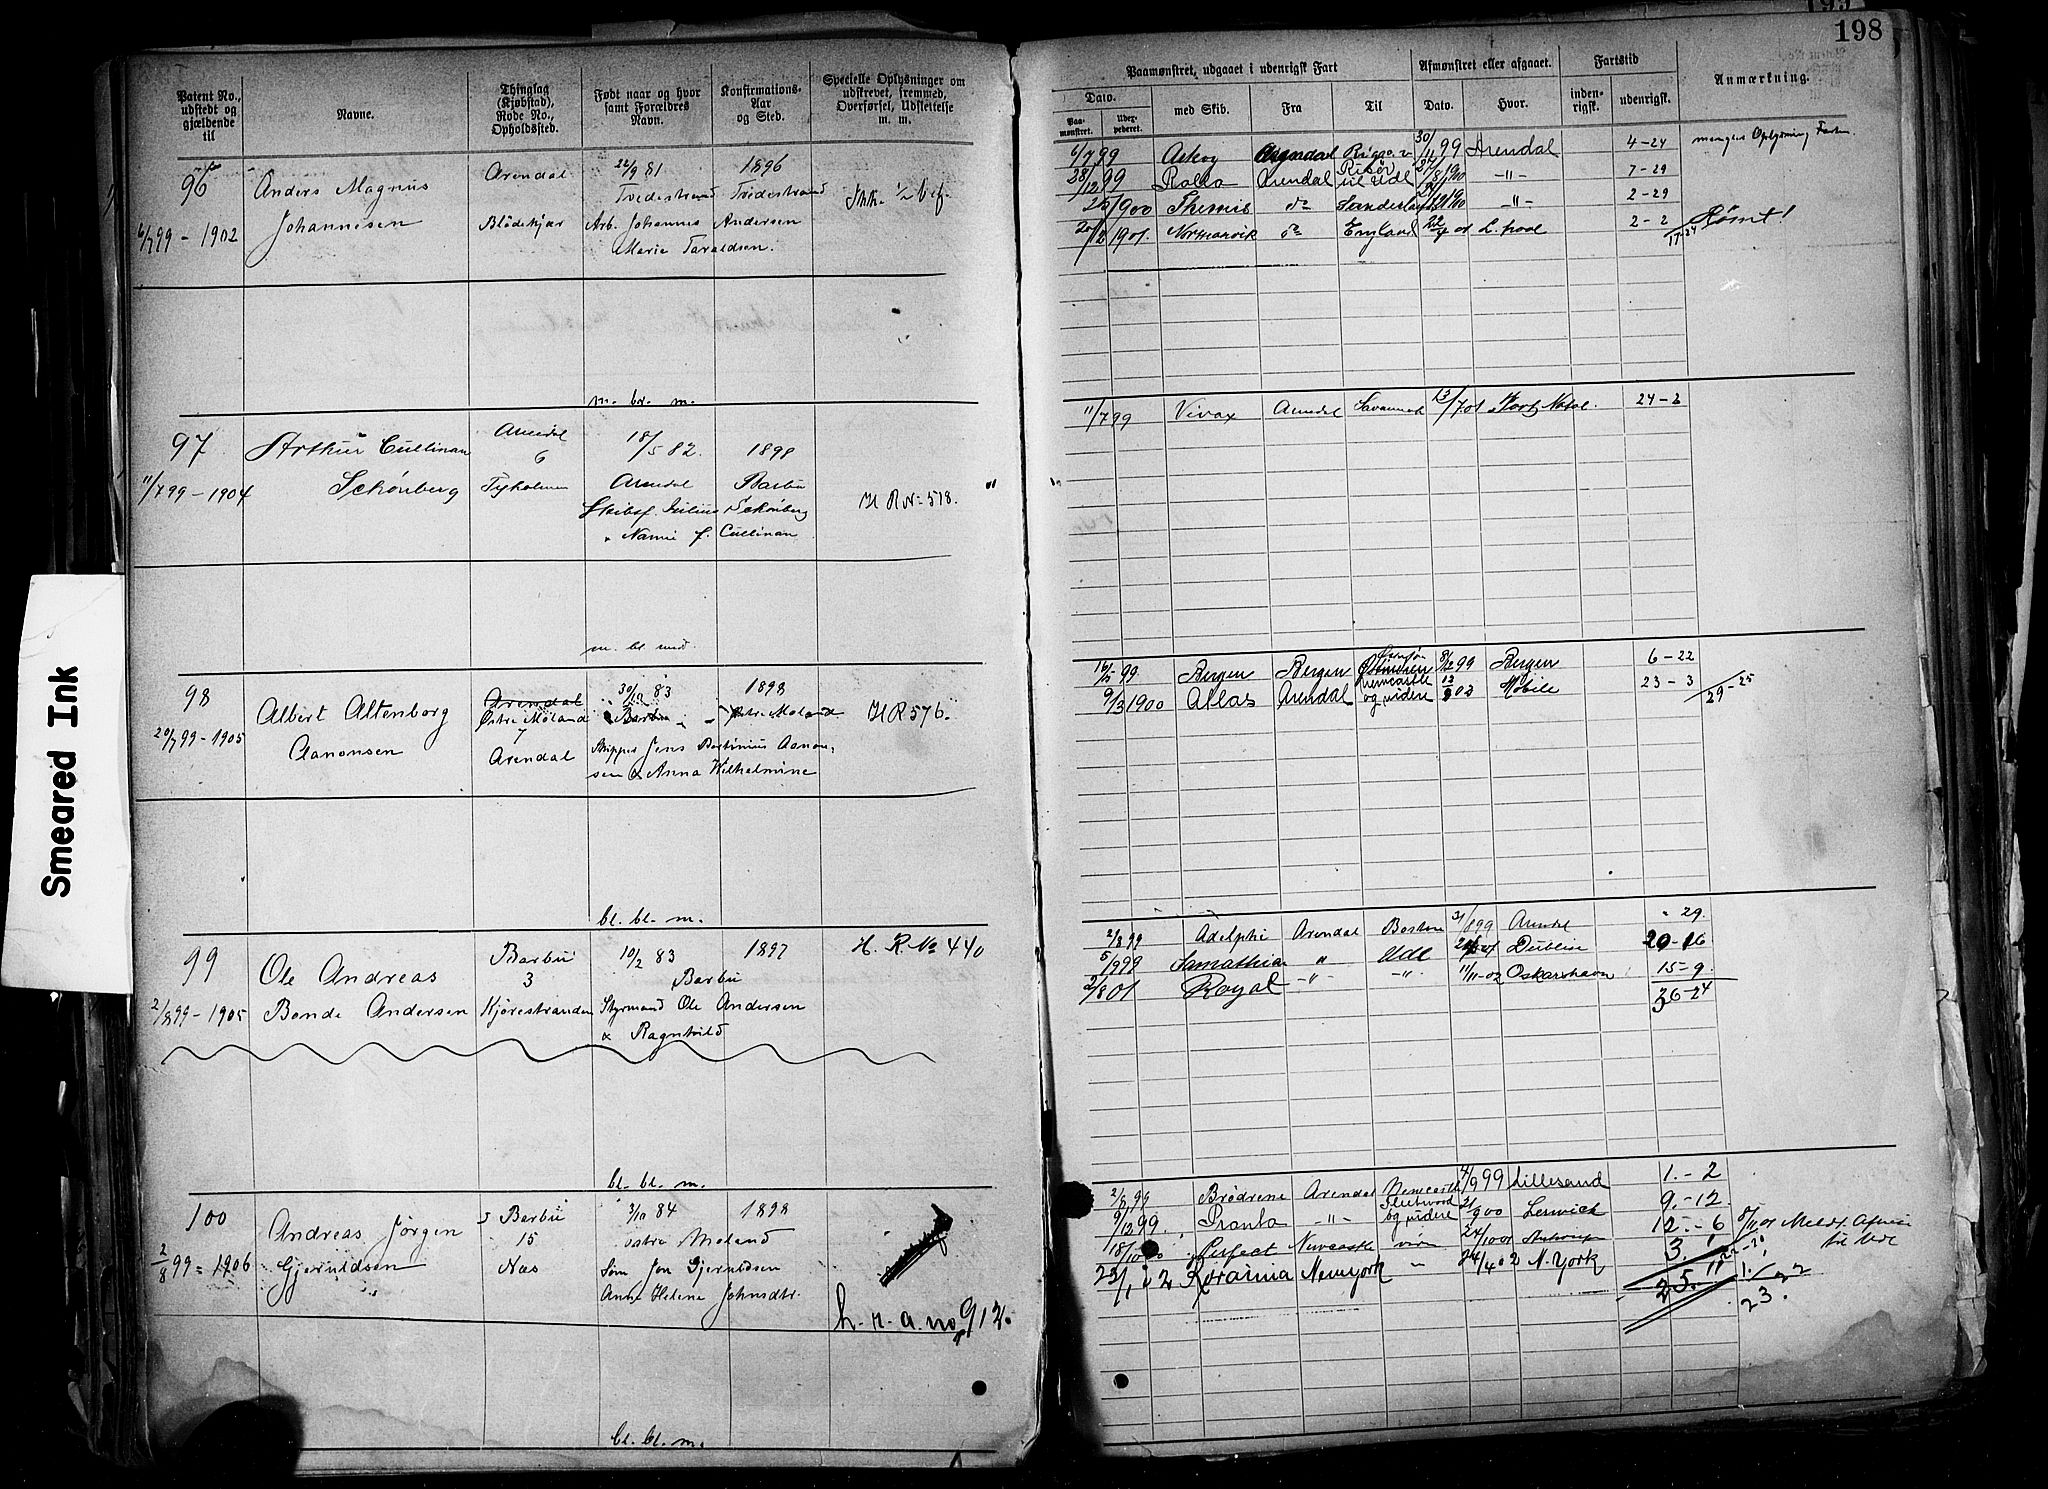 198
Patent No., udstedt og gjældende til
Navne.
Thinglag (Kjøbstad), Rode No., Opholdssted.
Født naar og hvor samt Forældres Navn.
Konfirmations- Aar og Sted.
Specielle Oplysninger om udskrevet, fremmed, Overførsel, Udslettelse m. m.
Paamønstret, udgaaet i udenrigsk Fart
Afmønstret eller afgaaet.
Fartstid
Anmærkning.
Dato.
Paa- mønstret.
Udex- pederet.
med Skib.
Fra
Til
Dato.
Hvor.
inden- rigsk.
udenrigsk.
96
Anders Magnus
Arendal
22/9 81
1896
Johannesen
Tvedestrand
Tvedestrand
6/7 99 - 1902
Blødekjær
Arb. Johannes Andersen
Marie Taraldsen.
m. br. m.
6/7 99
Askoy
Arendal
30/11 99
Arendal
4-24
28/12 99
Rollo
Arendal
til Udl
-"-
7-29
1900
Themis
do
Sunderland
-"-
2-29
20/12 1901.
Normanvik
do
England
22/4 01
L. pool
2-2
17-24
Rømt!
97
Arthur Cullinan
Arendal
18/5 82.
1898
6
11/7 99 - 1904
Schönberg
Tyholmen
Arendal
Barbu
Skibsf. Julius Schönberg
Nanni f. Cullinan
H R No 578.
m. bl. m.
11/7 99
Vivax
Arendal
Savannah
13/7 01
Port Natal.
24-2
98
Albert Altenborg
Arendal
30/10 83
1898
Østre Moland
Barbu
Østre Moland
H R 576.
7
20/7 99 - 1905
Aanonsen
Arendal
Skipper Jens Bertinius Aanon-
sen & Anna Wilhelmine
bl. bl. m.
99
Bergen
Bergen
8/12 99
Bergen
6-22
9/3 1900
Atlas
Arendal
Newcastle
og videre
Mobile
23-3
29-25
99
Ole Andreas
Barbu
10/2 83
1897
H. R. No 440
3
Barbu
2/8 99 - 1905
Bonde Andersen
Kjørestranden
Styrmand Ole Andersen
& Ragnhild
bl. bl. m.
2/8 99
Adelphi
Arendal
Boston
31/8 99
Arendal
29.
5/9 99
Samathian
"
Udl
Dublin
20-16
2/8 01
Royal
-"-
-"-
11/11-02
Oskarshavn
15-9.
36-24
100
Andreas Jørgen
Barbu
3/10 84
1898
15
østre Moland
2/8 99 - 1906
Gjeruldsen
Næs
Søm Jon Gjeruldsen
Anne Helene Johnsdtr.
h. r. a. no 912.
bl. bl. m.
2/8 99
Brødrene
Arendal
Newcastle
4/9 99
Lillesand
1.-2
9/12 99.
Pronto
-"-
Fleetwood
og videre
Lerwick
9.-12
Perfect
Newcastle
24/10 01
12.-6
Korasima
New York
"
24/4 02
N. York
3.
25. 11
23.
Smeared Ink